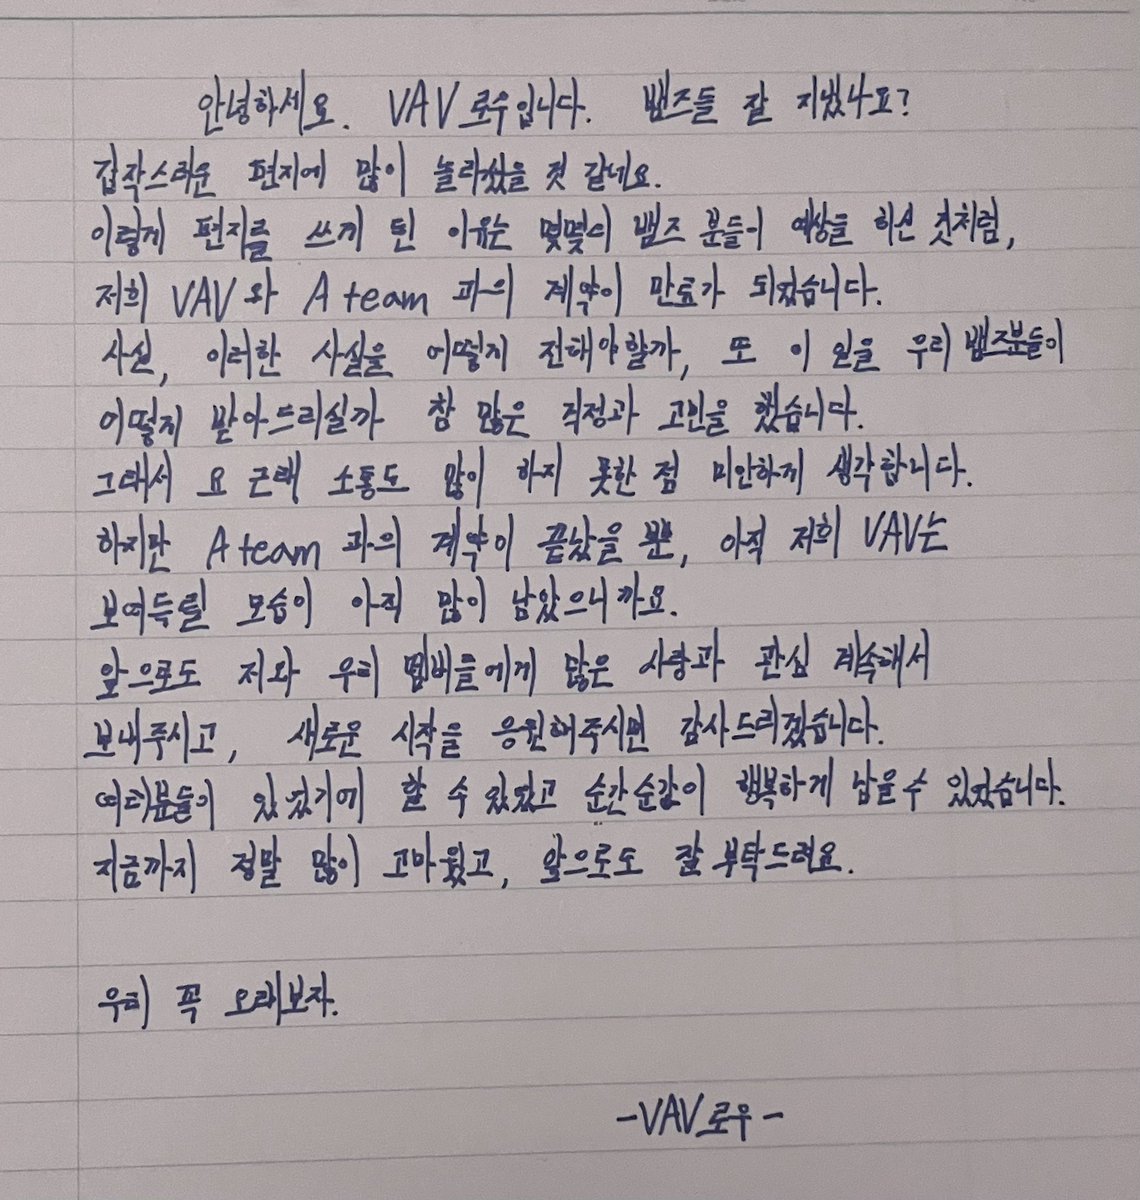 안녕하세요. VAV로우입니다. 뱀즈들 잘 지냈나요?
갑작스러운 편지에 많이 놀라셨을 것 같네요.
이렇게 편지를 쓰게 된 이유는 몇몇의 뱀즈 분들이 예상을 하신 것처럼,
저희 VAV와 A team 과의 계약이 만료가 되었습니다.
사실, 이러한 사실을 어떻게 전해야할까, 또 이 일을 우리 뱀즈분들이
어떻게 받아드리실까 참 많은 걱정과 고민을 했습니다.
그래서 요 근래 소통도 많이 하지 못한 점 미안하게 생각합니다.
하지만 A team 과의 계약이 끝났을 뿐, 아직 저희 VAV는
보여드릴 모습이 아직 많이 남았으니까요.
앞으로도 저와 우리 멤버들에게 많은 사랑과 관심 계속해서
보내주시고, 새로운 시작을 응원해주시면 감사드리겠습니다.
여러분들이 있었기에 할 수 있었고 순간순간이 행복하게 남을 수 있었습니다.
지금까지 정말 많이 고마웠고, 앞으로도 잘 부탁드려요.
우리 꼭 오래보자.
-VAV로우-